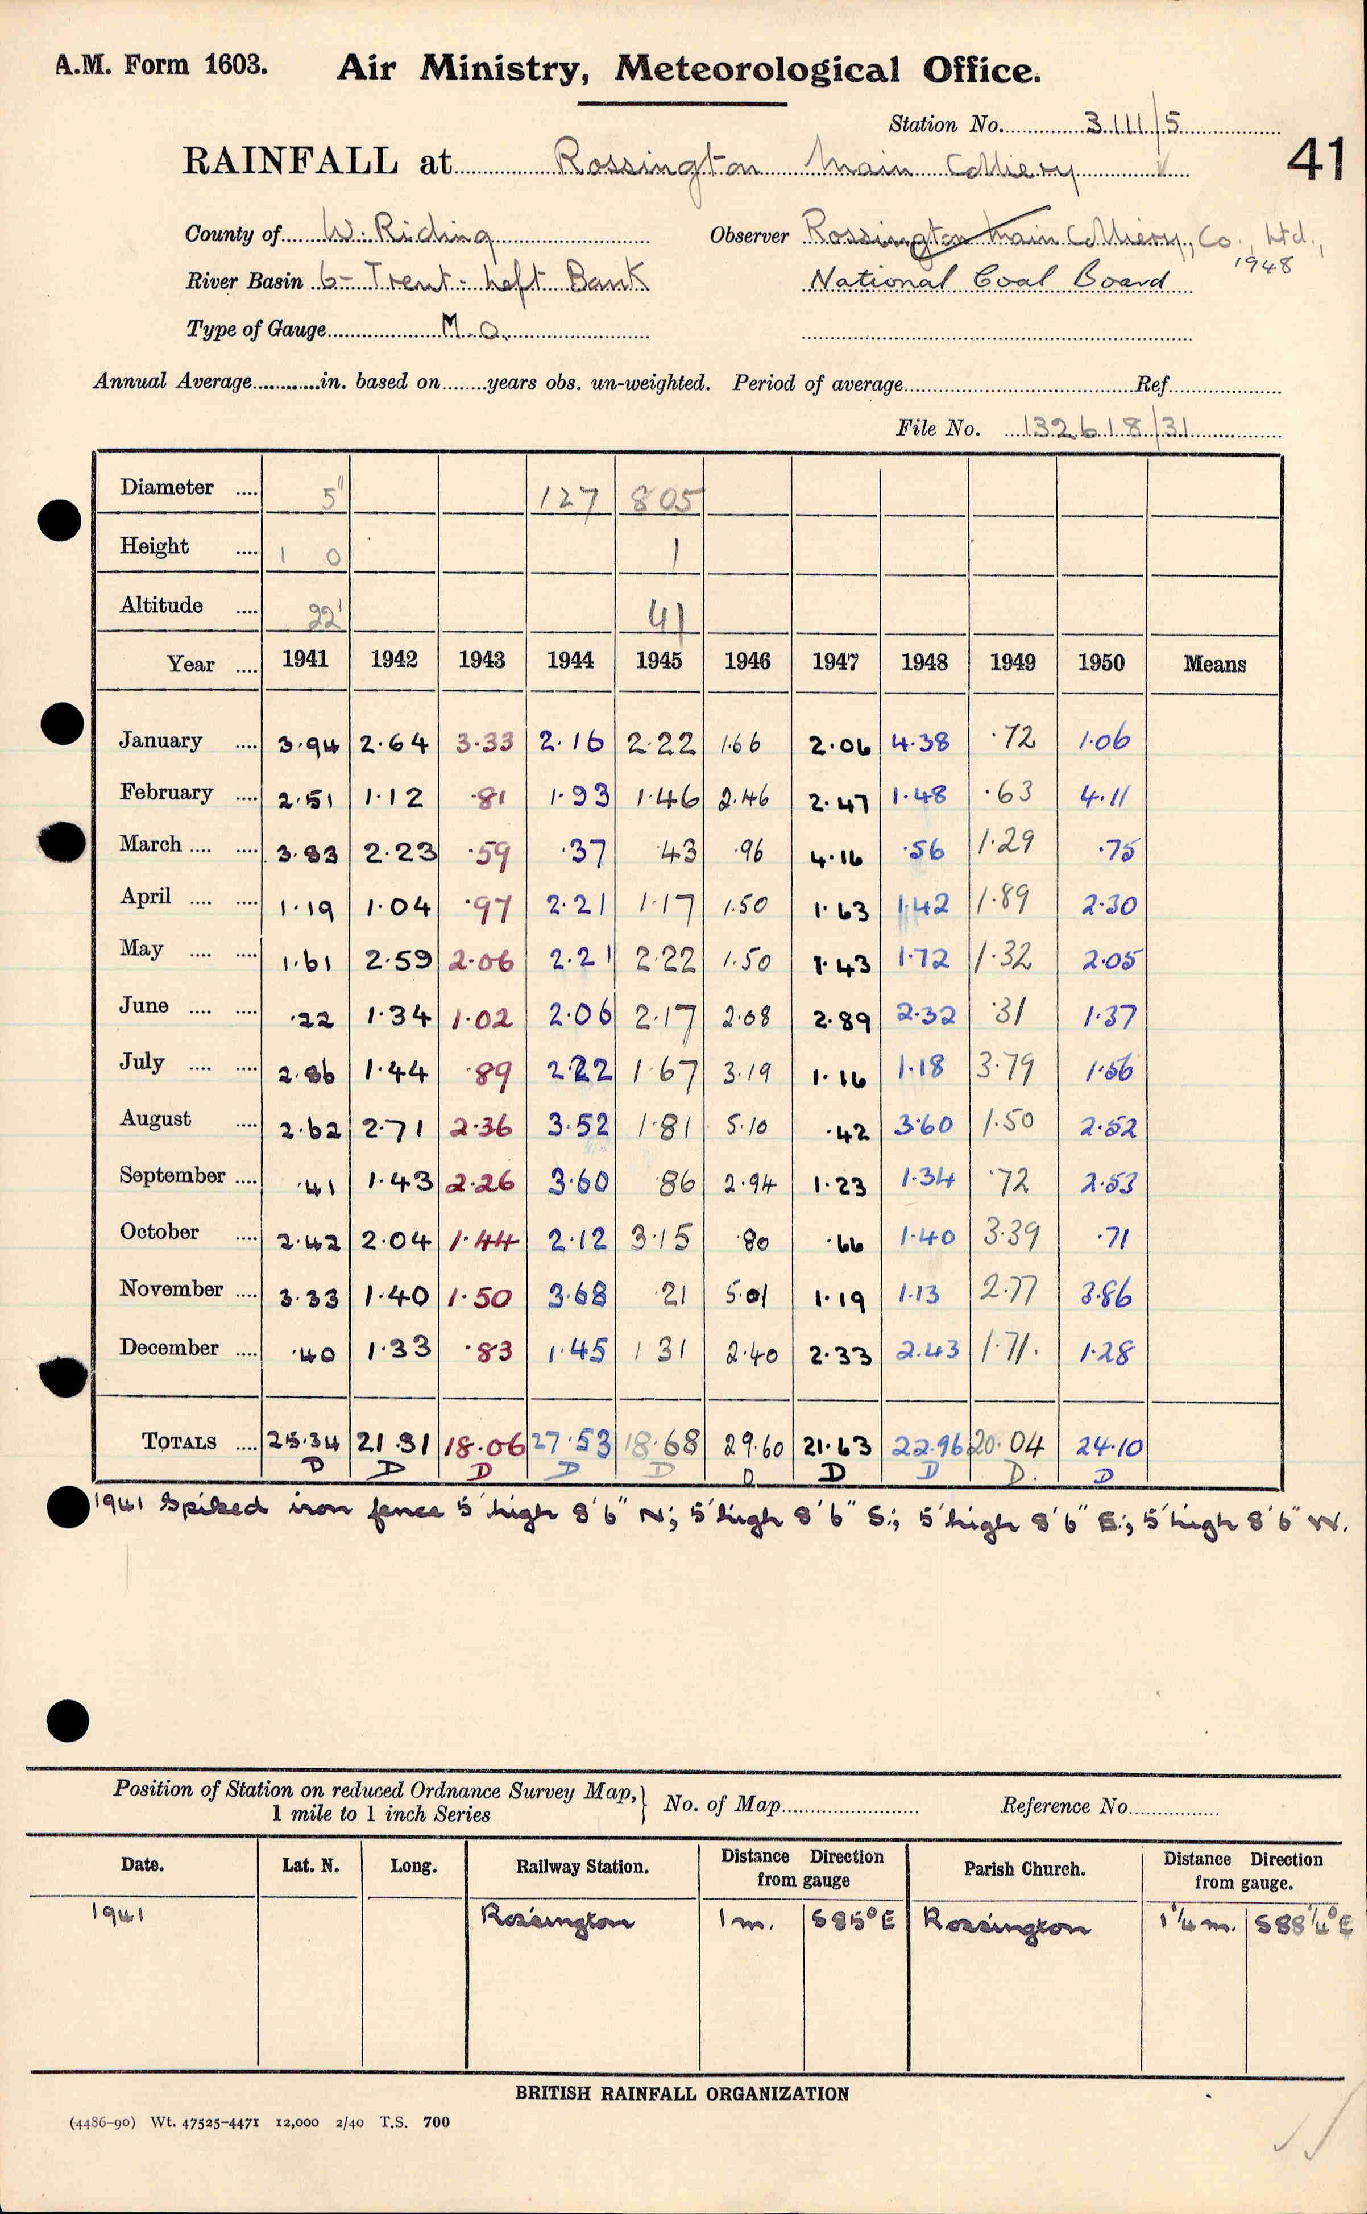 A.M. Form 1603. Air Ministry, Meteorological Office.
Station No. 3111/5
RAINFALL at Rossington Main Colliery 41
County of W. Riding Observer Rossington Main Colliery, Co., Ltd.,
River Basin 6 - Trent: Left Bank National Coal Board 1948
Type of Gauge M.O.
Annual Average in. based on years obs. un-weighted. Period of average Ref
File No. 132618/31
Diameter 5" 127 805
Height 1 0 1
Altitude 22' 41
Year 1941 1942 1943 1944 1945 1946 1947 1948 1949 1950 Means
January 3.94 2.64 3.33 2.16 2.22 1.66 2.06 4.38 .72 1.06
February 2.51 1.12 .81 1.93 1.46 2.46 2.47 1.48 .63 4.11
March 3.83 2.23 .59 .37 43 .96 4.16 .56 1.29 .75
April 1.19 1.04 .97 2.21 1.17 1.50 1.63 1.42 1.89 2.30
May 1.61 2.59 2.06 2.21 2.22 1.50 1.43 1.72 1.32 2.05
June .22 1.34 1.02 2.06 2.17 2.08 2.89 2.32 .31 1.37
July 2.86 1.44 .89 2.22 1.67 3.19 1.16 1.18 3.79 1.56
August 2.62 2.71 2.36 3.52 1.81 5.10 .42 3.60 1.50 2.52
September .41 1.43 2.26 3.60 86 2.94 1.23 1.34 .72 2.53
October 2.42 2.04 1.44 2.12 3.15 .80 .66 1.40 3.39 .71
November 3.33 1.40 1.50 3.68 21 5.01 1.19 1.13 2.77 3.86
December .40 1.33 .83 1.45 1 31 2.40 2.33 2.43 1.71. 1.28
TOTALS 25.34 21.31 18.06 27.53 18.68 29.60 21.63 22.96 20.04 24.10
D D D D D D D D D. D
1941 Spiked iron fence 5' high 8'6" N; 5' high 8'6" S.; 5' high 8'6" E.; 5' high 8'6" W.
Position of Station on reduced Ordnance Survey Map, } No. of Map Reference No.
1 mile to 1 inch Series
Date. Lat. N. Long. Railway Station. Distance Direction from gauge Parish Church. Distance Direction from gauge.
1941 Rossington 1 m. S 85° E Rossington 1 1/4 m. S 88 1/4° E
BRITISH RAINFALL ORGANIZATION
(4486-90) Wt. 47525-4471 12,000 2/40 T.S. 700